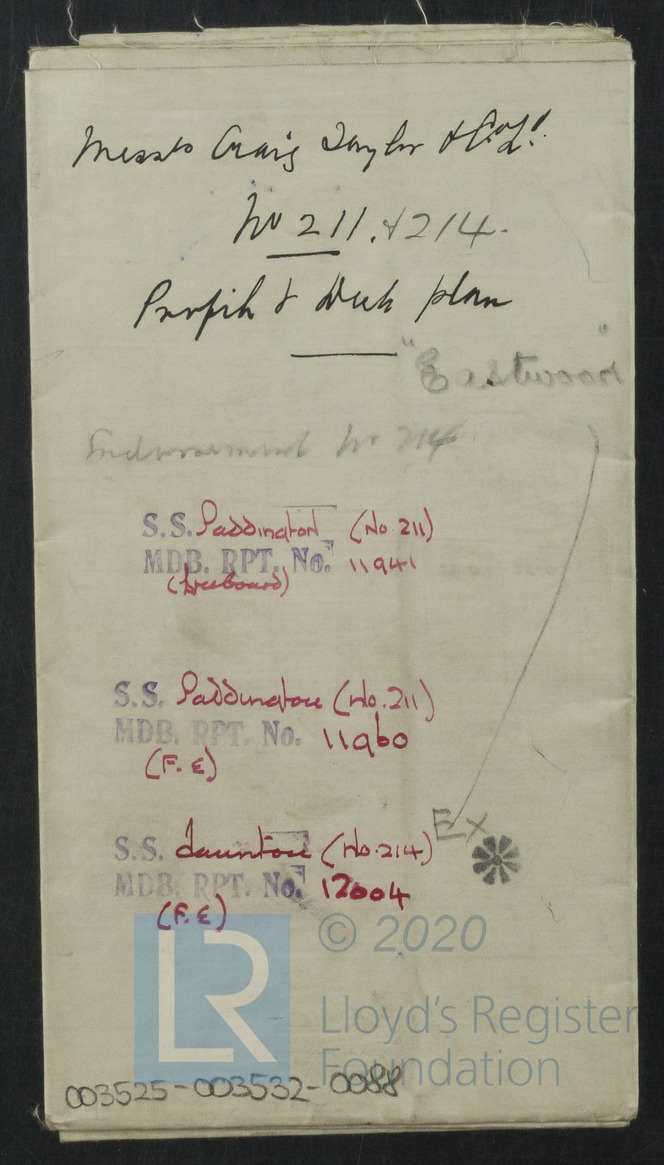 Messrs Craig Taylor & Co. Ld.
No 211. & 214.
Profile & Deck plan
"Eastwood"
Endorsement No 214
S.S. Paddington (No. 211)
MDB. RPT. No. 11941
(freeboard)
S.S. Paddington (No. 211)
MDB. RPT. No. 11960
(F.E)
Ex
S.S. Taunton (No. 214)
MDB. RPT. No. 12004
(F.E)
LR
© 2020
Lloyd's Register
Foundation
003525-003532-0088